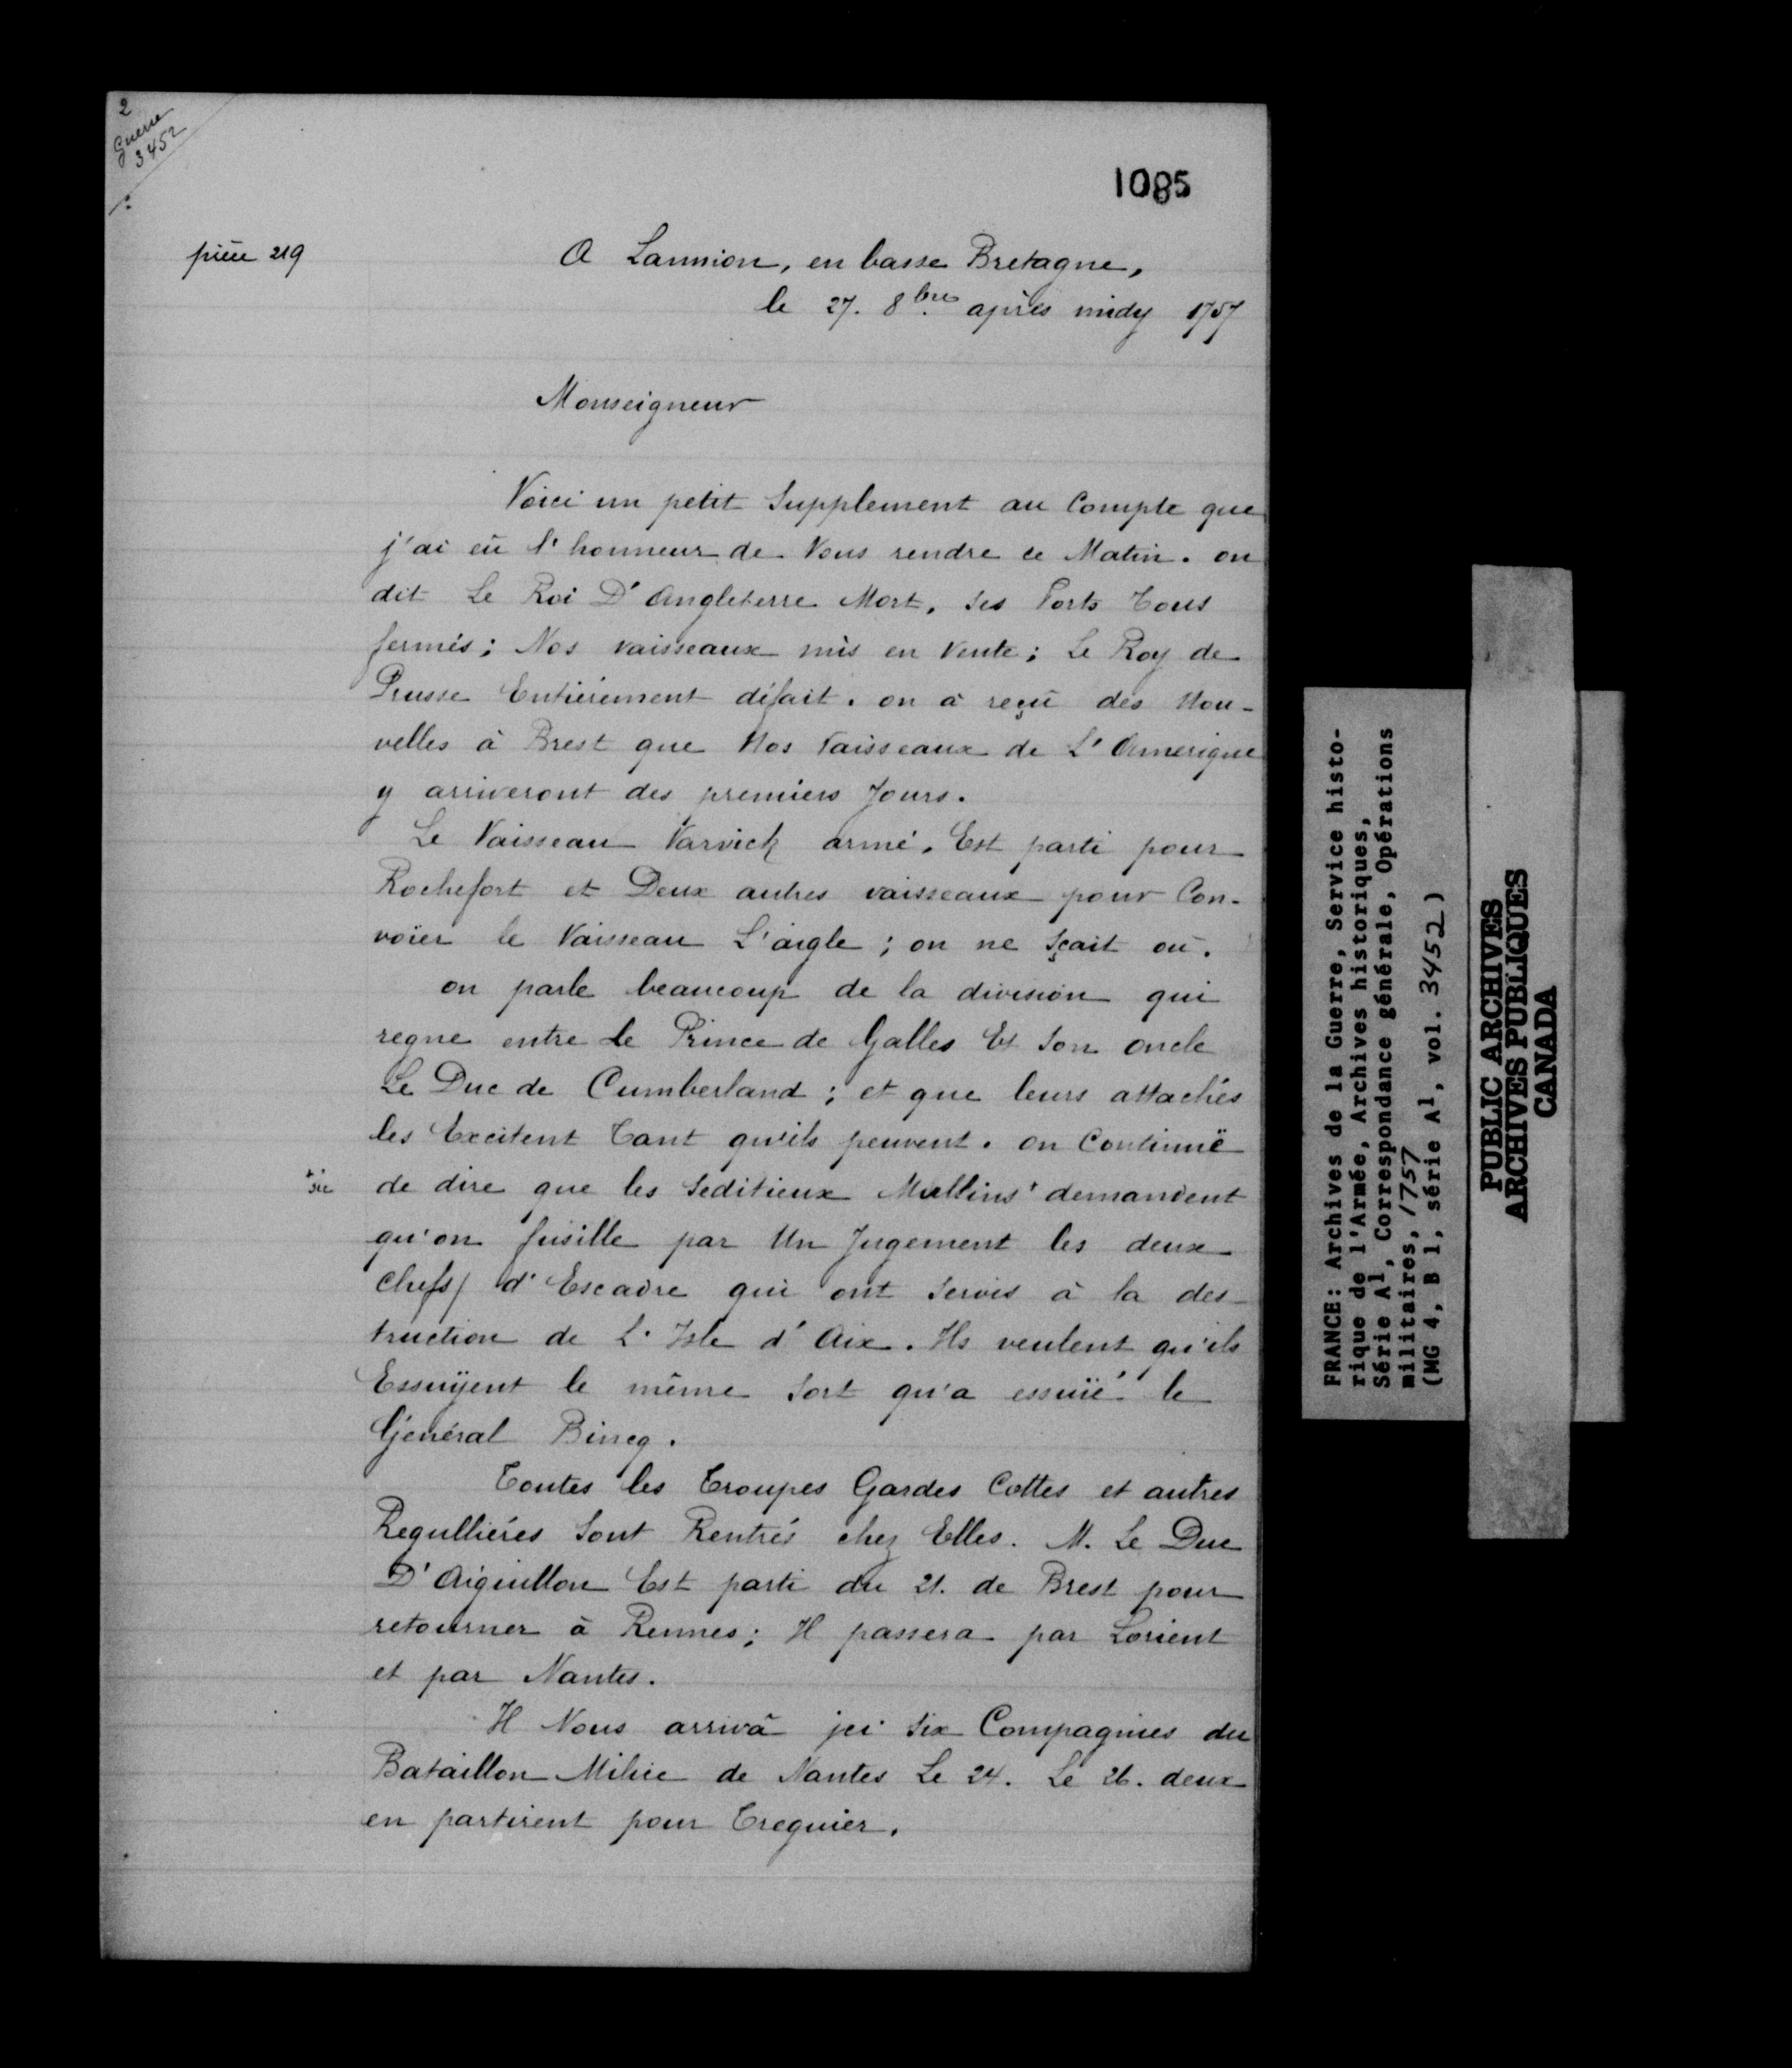 2
Guerre
3452
1085
pièce 219
A Lannion, en basse Bretagne,
le 27. 8bre après midy 1757
Monseigneur
Voici un petit Supplement au Compte que
j'ai eû l'honneur de Vous rendre ce Matin. on
dit Le Roi D'Angleterre Mort, ses Ports Tous
fermés; Nos vaisseaux mis en Vente; Le Roy de
Prusse Entiérement défait. on à reçû des Nou-
velles à Brest que Nos Vaisseaux de L'Amerique
y arriveront des premiers Jours.
Le Vaisseau Varvick armé, Est parti pour
Rochefort et Deux autres vaisseaux pour Con-
voïer le Vaisseau L'aigle; on ne sçait où.
on parle beaucoup de la division qui
regne entre Le Prince de Galles Et Son oncle
Le Duc de Cumberland; et que leurs attachés
les Excitent Tant qu'ils peuvent. on Continuë
+ sic
de dire que les Seditieux Mullins+ demandent
qu'on fusille par Un Jugement les deux
Chefs d'Escadre qui ont Servis à la des-
truction de L'Isle d'Aix. Ils veulent qu'ils
Essuÿent le même Sort qu'a essuïé le
Général Binçg.
Toutes les Troupes Gardes Cottes et autres
Regulliéres Sont Rentrés chez Elles. M. Le Duc
D'Aiguillon Est parti du 21. de Brest pour
retourner à Rennes; Il passera par Lorient
et par Nantes.
Il Nous arrivâ jci Six Compagnies du
Bataillon Milice de Nantes Le 24. Le 26. deux
en partirent pour Treguier.
FRANCE: Archives de la Guerre, Service histo-
rique de l'Armée, Archives historiques,
Série A1, Correspondance générale, Opérations
militaires, 1757
(MG 4, B 1, série A1, vol. 3452)
PUBLIC ARCHIVES
ARCHIVES PUBLIQUES
CANADA